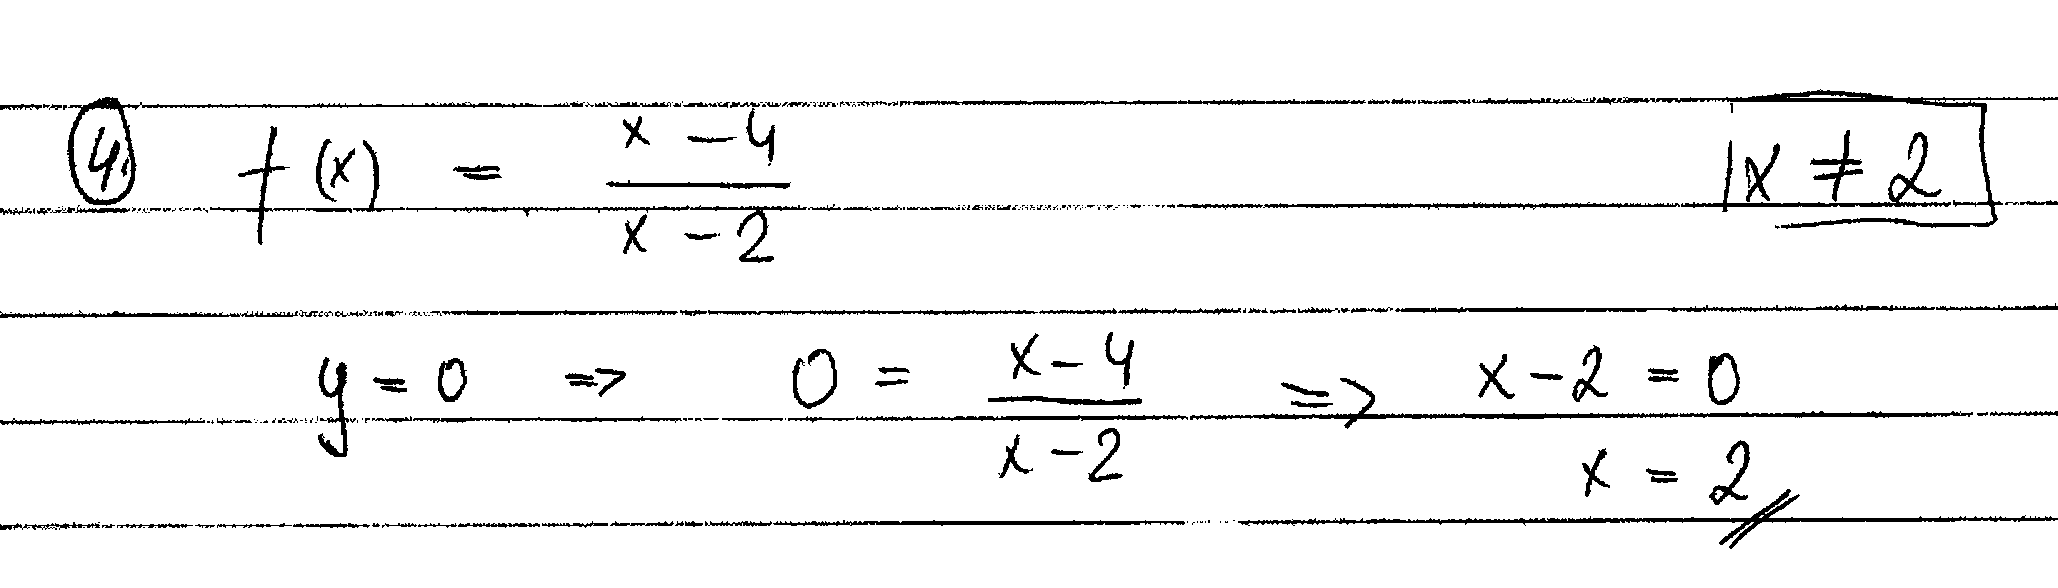 4. f(x) = (x - 4)/(x - 2) x ≠ 2
y = 0 => 0 = (x - 4)/(x - 2) => x - 2 = 0
x = 2